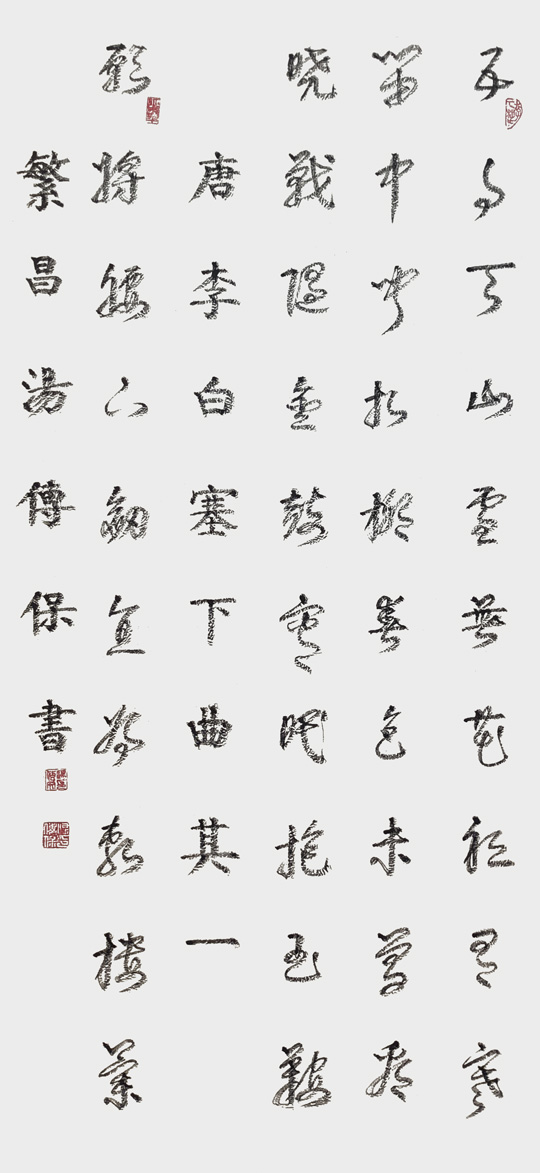 五月天山雪無花祇有寒
笛中聞折柳春色未曾看
曉戰隨金鼓宵眠抱玉鞍
唐李白塞下曲其一
願將腰下劍直為斬樓蘭
繁昌湯傳保書